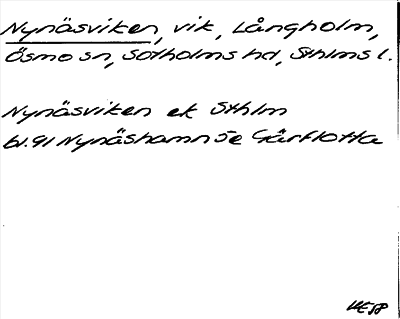 Nynäsviken, vik, Långholm,
Ösmo sn, Sotholms hd, Sthlms l.
Nynäsviken ek Sthlm
bl. 91 Nynäshamn 5e Gårflotta